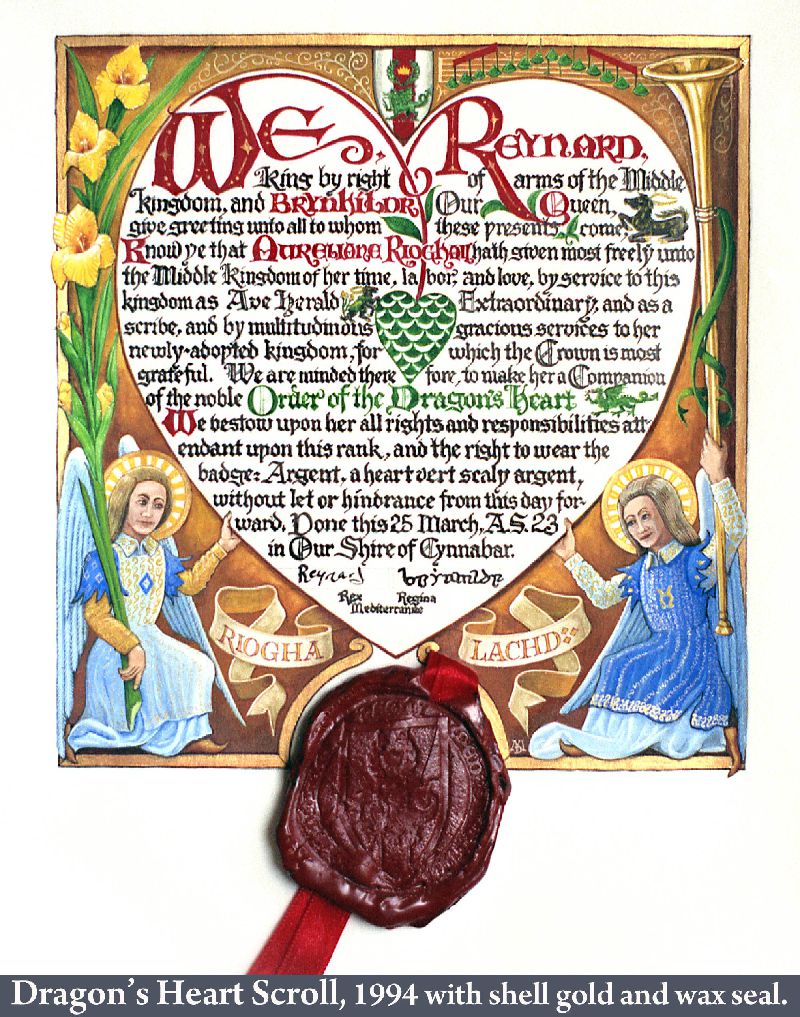 We, Reynard,
King by right of arms of the Middle
kingdom, and Brynhildr Our Queen,
give greeting unto all to whom these presents come;
Know ye that Aureliane Rioghail hath given most freely unto
the Middle Kingdom of her time, labor, and love, by service to this
kingdom as Ave Herald Extraordinary, and as a
scribe, and by multitudinous gracious services to her
newly-adopted kingdom, for which the Crown is most
grateful. We are minded therefore, to make her a Companion
of the noble Order of the Dragon's Heart
We bestow upon her all rights and responsibilities att-
endant upon this rank, and the right to wear the
badge: Argent, a heart vert scaly argent,
without let or hindrance from this day for-
ward. Done this 25 March, A.S. 23
in Our Shire of Cynnabar.
Reynard Brynhildr
Rex Regina
Mediterranae
RIOGHA LACHD
Dragon's Heart Scroll, 1994 with shell gold and wax seal.